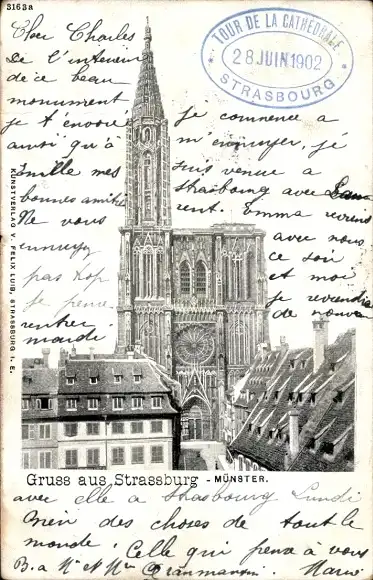 3163a
TOUR DE LA CATHÉDRALE
28 JUIN 1902
STRASBOURG
Cher Charles
De l'interieur
de ce beau
monument
je t'envoie
ainsi qu'à
famille mes
bonnes amitiés
Ne vous
ennuyez
pas trop
je pense
rentrer
mardi
je commence a
m'ennuyer, je
suis venue a
Strasbourg avec
rent. Emma reviens
avec nous
ce soir
et moi
je reviendrai
de nouveau
KUNSTVERLAG V. FELIX LUIB, STRASSBURG I. E.
Gruss aus Strassburg - MÜNSTER.
avec elle a Strasbourg Lundi
bien des choses de tout le
monde. Celle qui pense à vous
B. a Mr et Mme Marie